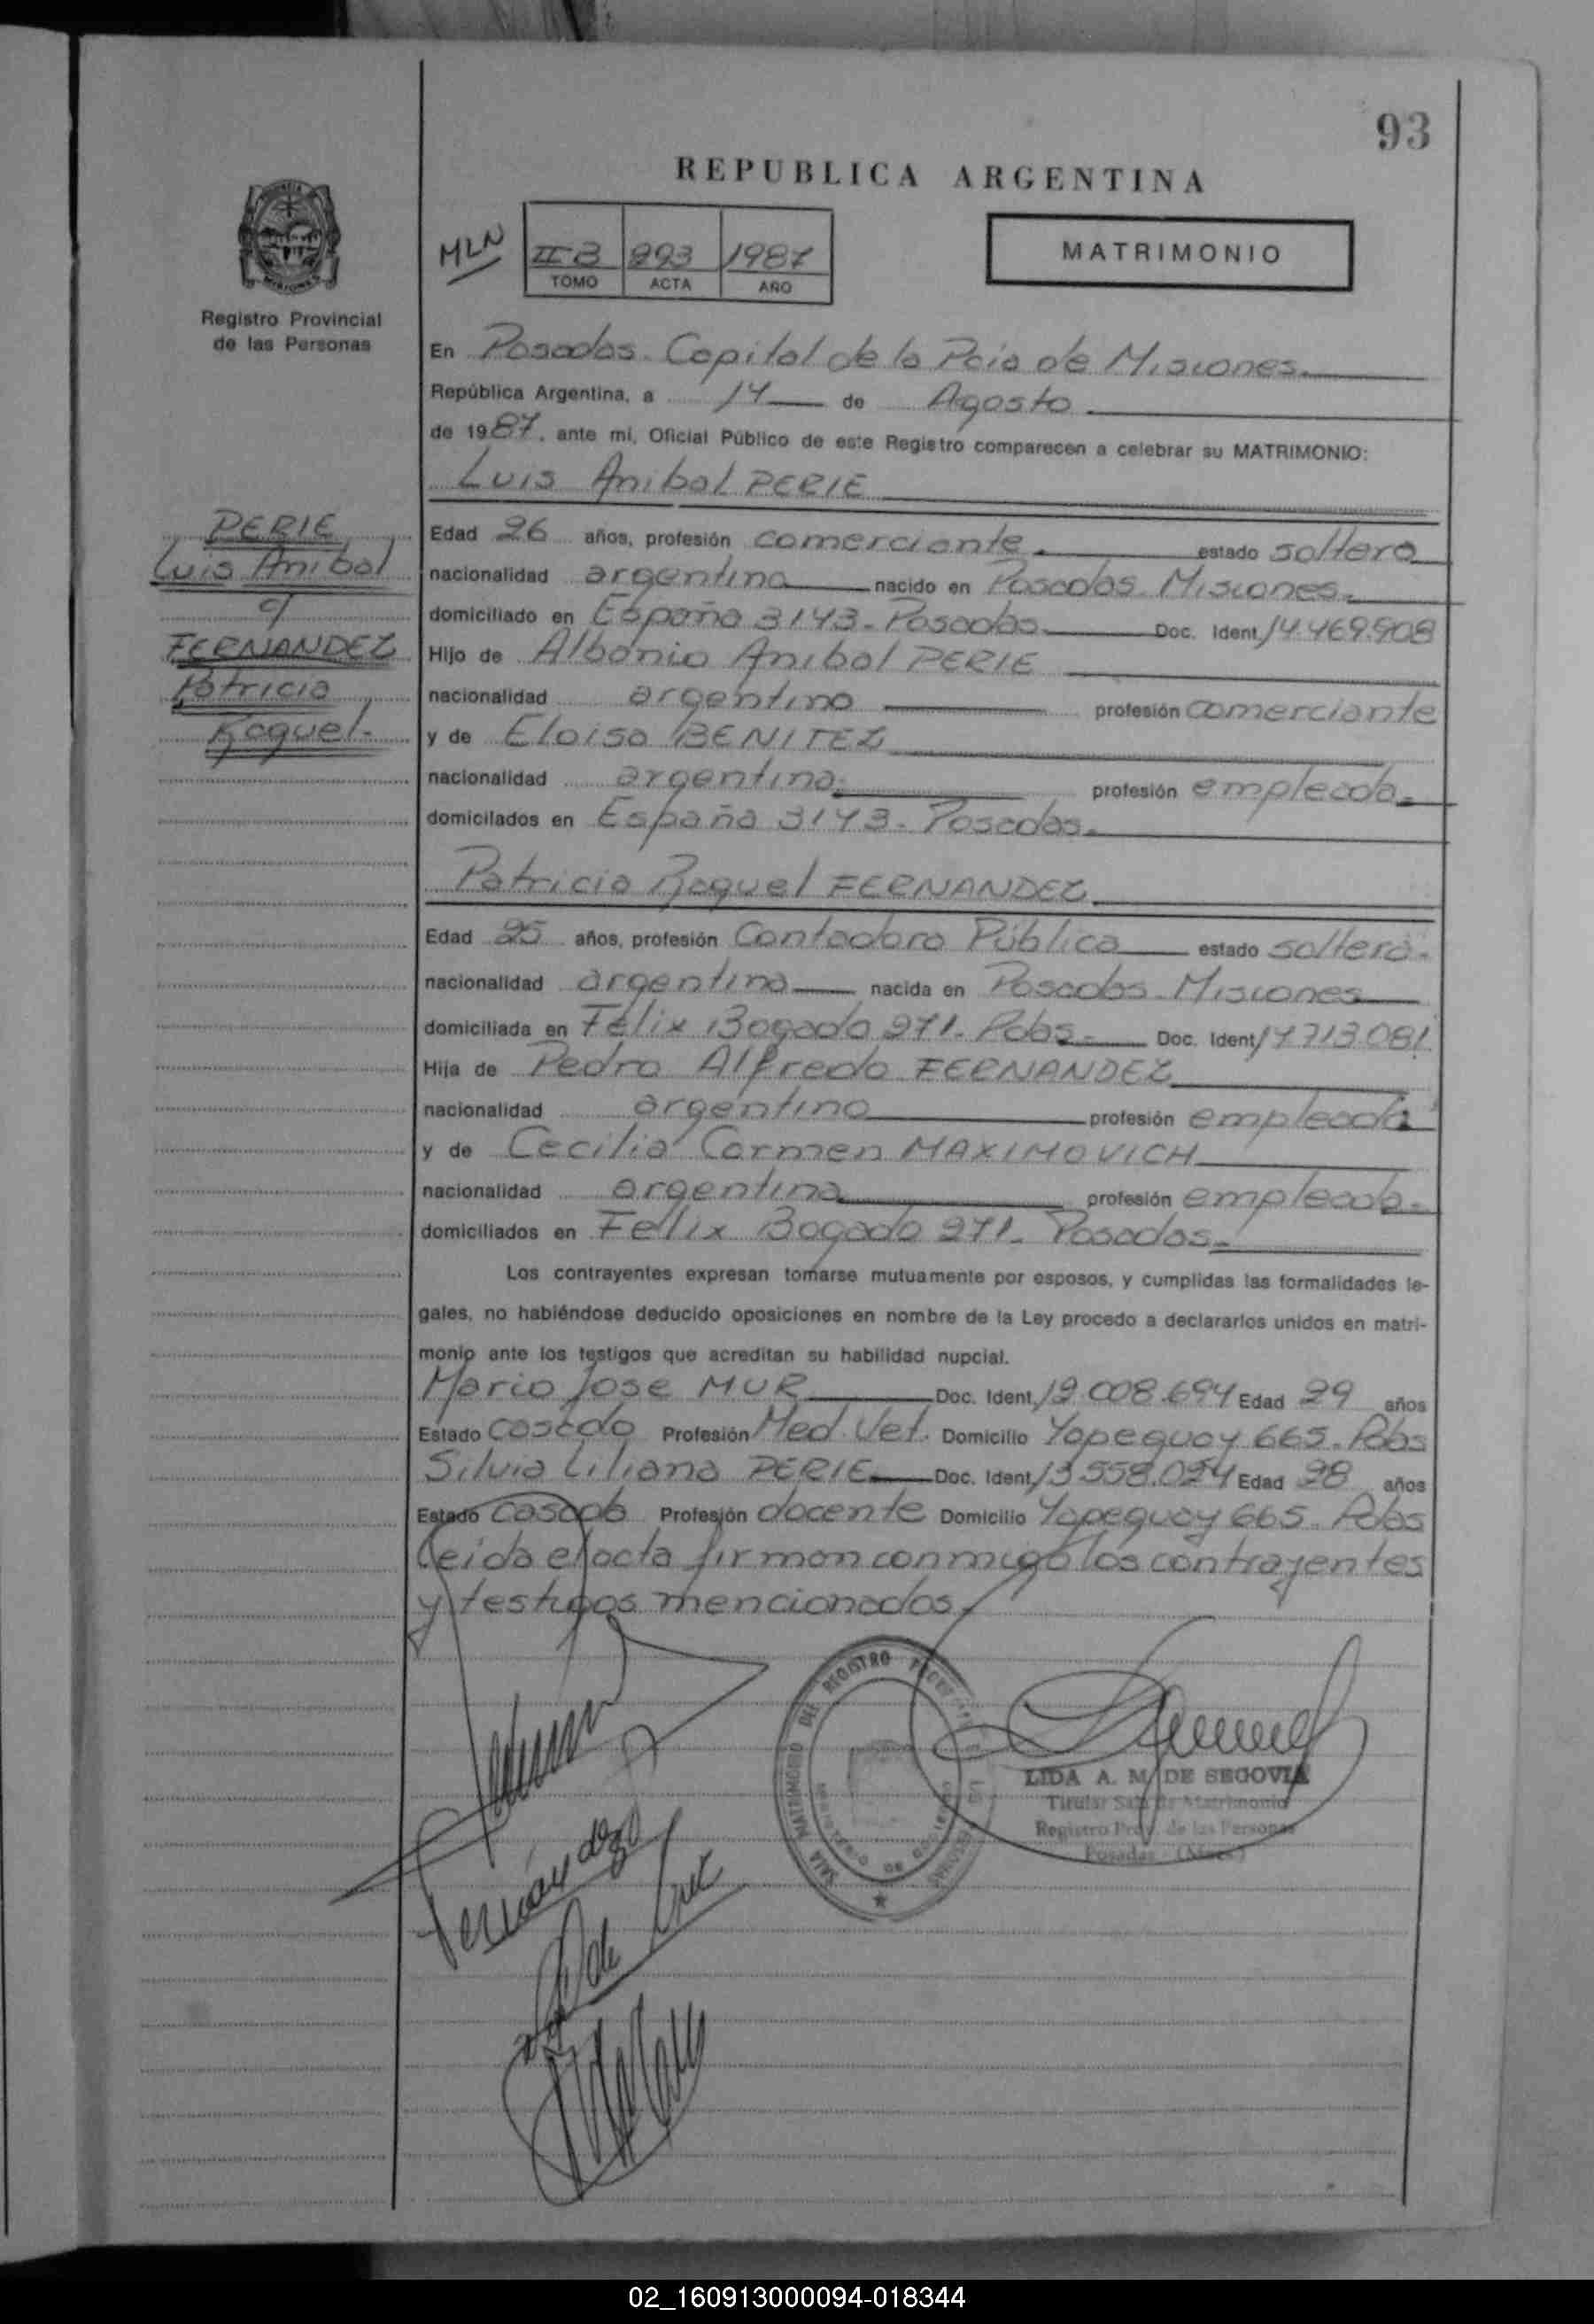 93
REPUBLICA ARGENTINA
MLN
II-B 293 1987
TOMO ACTA AÑO
MATRIMONIO
Registro Provincial
de las Personas
En Posadas. Capital de la Pcia de Misiones.
República Argentina, a 14 de Agosto
de 1987, ante mi, Oficial Público de este Registro comparecen a celebrar su MATRIMONIO:
Luis Anibal PERIE
PERIE
Luis Anibal
c/
FERNANDEZ
Patricia
Raquel.
Edad 26 años, profesión comerciante. estado soltero
nacionalidad argentina nacido en Posadas. Misiones.
domiciliado en España 3143. Posadas Doc. Ident. 14.469.908
Hijo de Albonio Anibal PERIE
nacionalidad argentino profesión comerciante
y de Eloisa BENITEZ
nacionalidad argentina. profesión empleada.
domicilados en España 3143. Posadas.
Patricia Raquel FERNANDEZ
Edad 25 años, profesión Contadora Pública estado soltera.
nacionalidad argentina nacida en Posadas. Misiones
domiciliada en Félix Bogado 271. Pdas. Doc. Ident. 14.713.081
Hija de Pedro Alfredo FERNANDEZ
nacionalidad argentino profesión empleado
y de Cecilia Carmen MAXIMOVICH
nacionalidad argentina profesión empleada.
domiciliados en Felix Bogado 271. Posadas.
Los contrayentes expresan tomarse mutuamente por esposos, y cumplidas las formalidades le-
gales, no habiéndose deducido oposiciones en nombre de la Ley procedo a declararlos unidos en matri-
monio ante los testigos que acreditan su habilidad nupcial.
Mario Jose MUR Doc. Ident. 12.008.694 Edad 29 años
Estado casado Profesión Med. Vet. Domicilio Yapeguay 665. Pdas
Silvia Liliana PERIE Doc. Ident. 13.558.024 Edad 28 años
Estado casada Profesión docente Domicilio Yapeguay 665. Pdas
Leida el acta firman conmigo los contrayentes
y testigos mencionados.
SALA MATRIMONIO DEL REGISTRO
LIDA A. M. DE SEGOVIA
Titular Sala de Matrimonio
Registro Prov. de las Personas
Posadas (Mnes.)
Fernández
02_160913000094-018344